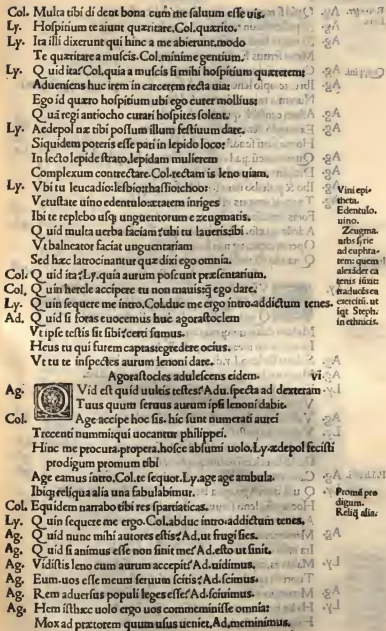 Col. Multa tibi di dent bona cum me saluum esse uis.
Ly. Hospitium te aiunt quæritare. Col. quærito.
Ly. Ita illi dixerunt qui hinc a me abierunt, modo
Te quæritare a muscis. Col. minime gentium.
Ly. Quid ita? Col. quia a muscis si mihi hospitium quærerem:
Adueniens huc irem in carcerem recta uia:
Ego id quæro hospitium ubi ego curer mollius:
Quã regi antiocho curari hospites solent.
Ly. Aedepol næ tibi possum illum festiuum dare.
Siquidem poteris esse pati in lepido loco:
In lecto lepide strato, lepidam mulierem
Complexum contrectare. Col. rectam is leno uiam.
Ly. Vbi tu leucadio: lesbio: thassio: choo:
Vetustate uino edentulo: ætatem iriges
Ibi te replebo usq; unguentorum e zeugmatis.
Quid multa uerba faciam? ubi tu laueris: ibi
Vt balneator faciat unguentariam
Sed hæc latrocinantur quæ dixi ego omnia.
Col. Quid ita? Ly. quia aurum poscunt præsentarium.
Col. Quin hercle accipere tu non mauis: q̃ ego dare.
Ly. Quin sequere me intro. Col. duc me ergo intro addictum tenes.
Ad. Quid si foras euocemus huc agorastoclem
Vt ipse testis sit sibi? certi sumus.
Heus tu qui furem captas: egredere ocius.
Vt tu te inspectes aurum lenoni dare.
Agorastocles adulescens eidem. vi
Ag. Quid est quid uultis testes? Adu. specta ad dexteram
Tuus quum seruus aurum ipsi lenoni dabit.
Col. Age accipe hoc sis. hic sunt numerati aurei
Trecenti nummi: qui uocantur philippei.
Hinc me procura. propera. hosce absumi uolo. Ly. ædepol fecisti
prodigum promum tibi
Age eamus intro. Col. te sequor. Ly. age age ambula.
Ibiq; reliqua alia una fabulabimur.
Col. Equidem narrabo tibi res spartiaticas.
Ly. Quin sequere me ergo. Col. abduc intro: addictum tenes.
Ag. Quid nunc mihi autores estis? Ad. ut frugi sies.
Ag. Quid si animus esse non sinit me? Ad. esto ut sinit.
Ag. Vidistis leno cum aurum accepit? Ad. uidimus.
Ag. Eum. uos esse meum seruum scitis? Ad. scimus.
Ag. Rem aduersus populi leges esse? Ad. sciuimus.
Ag. Hem isthæc uolo ergo uos commeminisse omnia:
Mox ad prætorem quum usus ueniet. Ad. meminimus.
Vini epi
theta.
Edentulo.
uino.
Zeugma.
urbs syrie
ad euphra
tem: quem
alexãder ca
tenis iũxit:
traducẽs ea
exercitũ. ut
iqt Steph.
in ethnicis.
Promũ pro
digum.
Reliq̃ alia.